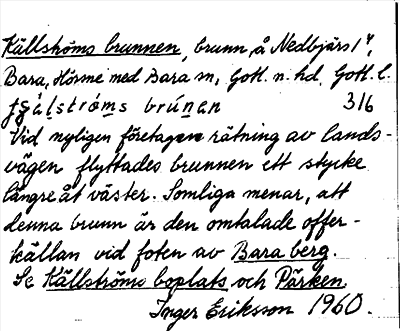 Källströms brunnen, brunn, å Nedbjärs 1⁴,
Bara, Hörsne med Bara sn, Gotl. n. hd, Gotl. l.
316
Vid nyligen företagen rätning av lands-
vägen flyttades brunnen ett stycke
längre åt väster. Somliga menar, att
denna brunn är den omtalade offer-
källan vid foten av Bara berg.
Se Källströms boplats och Pärken.
Inger Eriksson 1960.